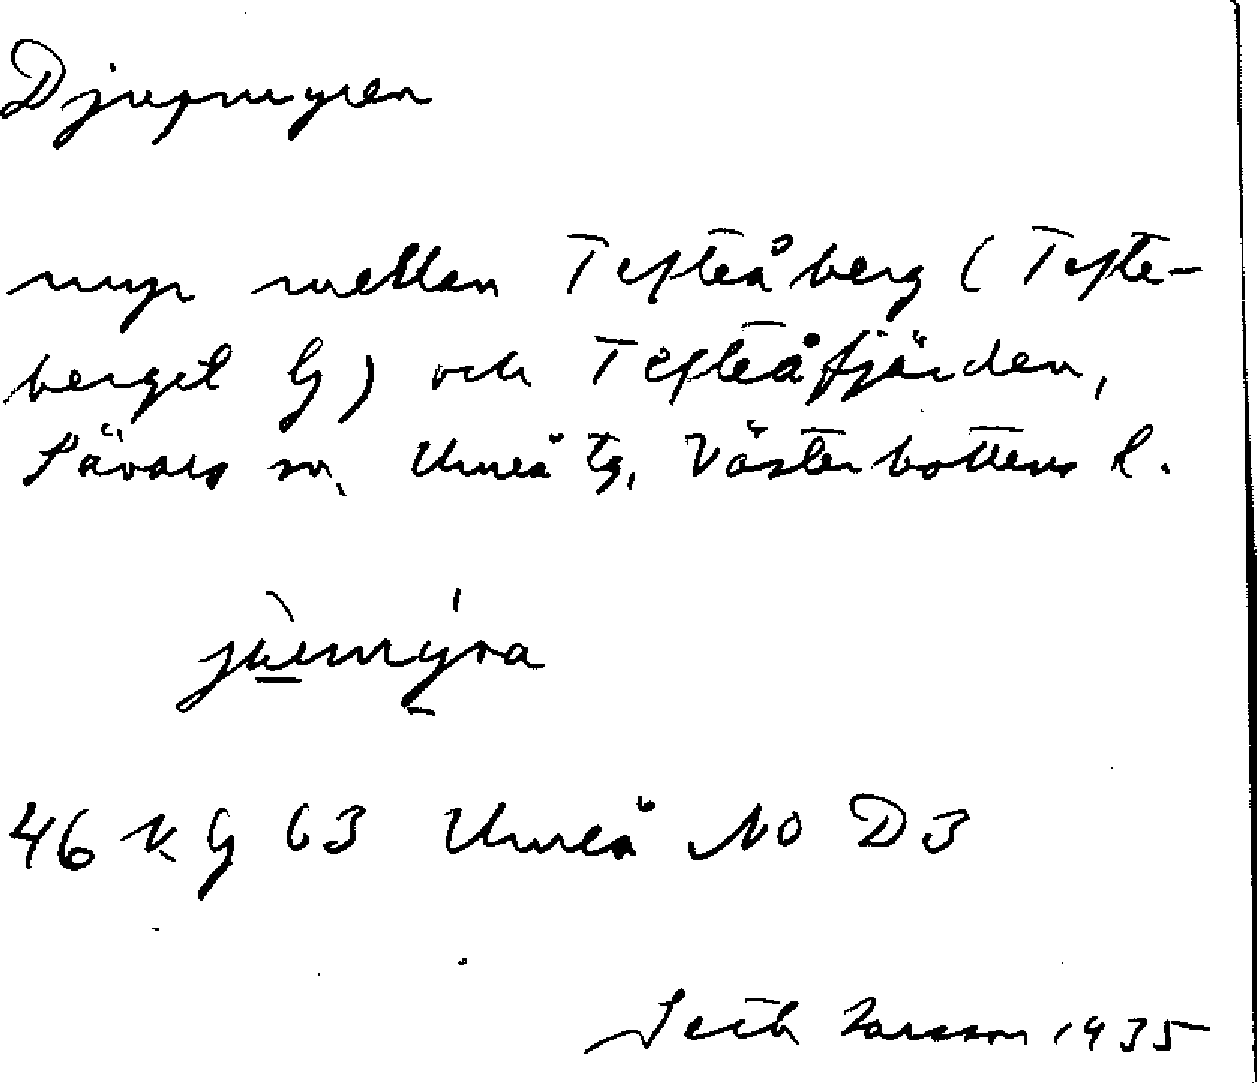 Djupmyren
myr mellan Tefteåberg (Tefte-
berget G) och Tefteåfjärden,
Sävars sn, Umeå tg, Västerbottens l.
46 K G 63 Umeå NO D3
Seth Larsson 1935